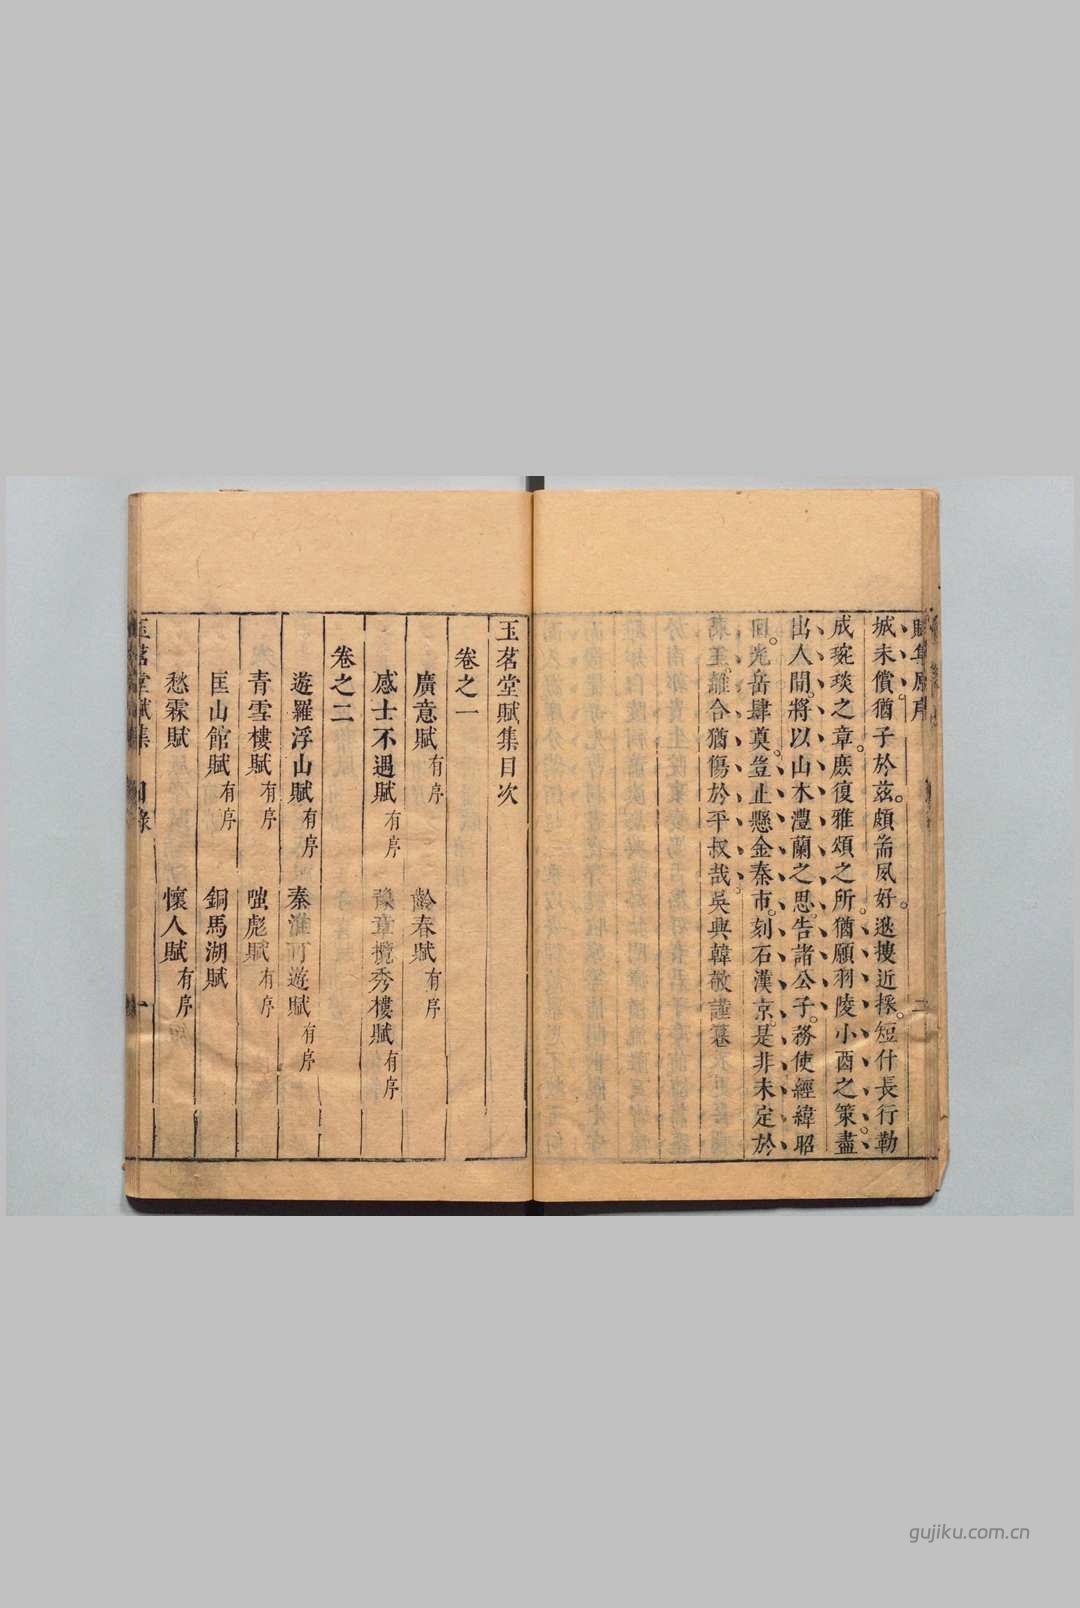 賦集原序
二
城未償猶子於茲頗耑夙好遂搜近採短什長行勒
成琬琰之章庶復雅頌之所猶願羽陵小酉之策盡
出人間將以山木澧蘭之思告諸公子務使經緯昭
回光岳肆奠豈止懸金秦市刻石漢京是非未定於
蕭王離合猶傷於平叔哉吳興韓敬謹纂
玉茗堂賦集目次
卷之一
廣意賦有序 齡春賦有序
感士不遇賦有序 豫章攬秀樓賦有序
卷之二
遊羅浮山賦有序 秦淮可遊賦有序
青雪樓賦有序 嗤彪賦有序
匡山館賦有序 銅馬湖賦
愁霖賦 懷人賦有序
玉茗堂賦集 目錄 一
gujiku.com.cn